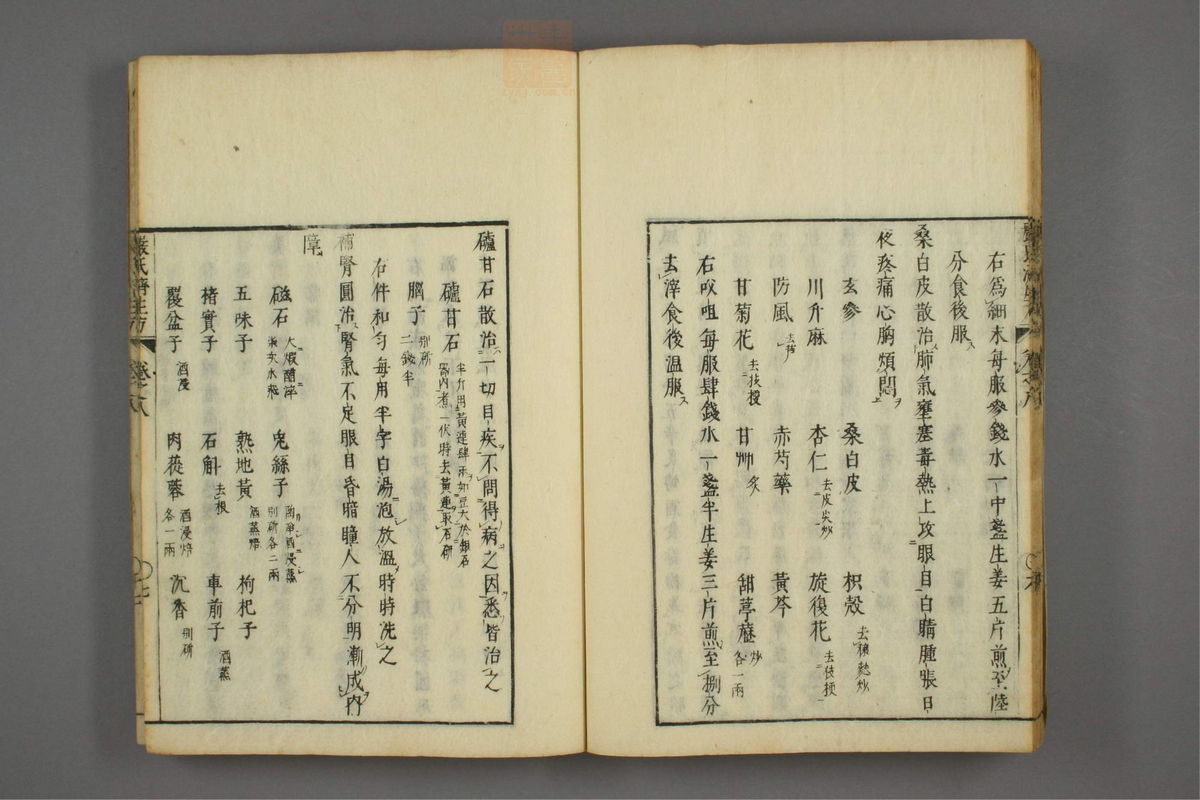 右爲細末每服參錢水一中盞生姜五片煎至陸
分食後服
桑白皮散治肺氣壅塞毒熱上攻眼目白睛腫脹日
夜疼痛心胸煩悶
玄參 桑白皮 枳殼去穰麩炒
川升麻 杏仁去皮尖炒 旋復花去枝梗
防風去芦 赤芍藥 黃芩
甘菊花去枝梗 甘艸炙 甜葶藶炒各一兩
右㕮咀每服肆錢水一盞半生姜三片煎至捌分
去滓食後溫服
爐甘石散治一切目疾不問得病之因悉皆治之
爐甘石半斤用黃連肆兩如豆大於銀石器內煮一伏時去黃連取石研
腦子別研二錢半
右件和勻每用半字白湯泡放溫時時洗之
補腎圓治腎氣不足眼目昏暗瞳人不分明漸成內
障
磁石火煅醋淬水飛 兔絲子酒浸蒸別研各二兩
五味子 熟地黃酒蒸焙 枸杞子
楮實子 石斛去根 車前子酒蒸
覆盆子酒浸 肉蓯蓉酒浸焙各一兩 沉香別研
嚴氏濟生方 卷之八 七